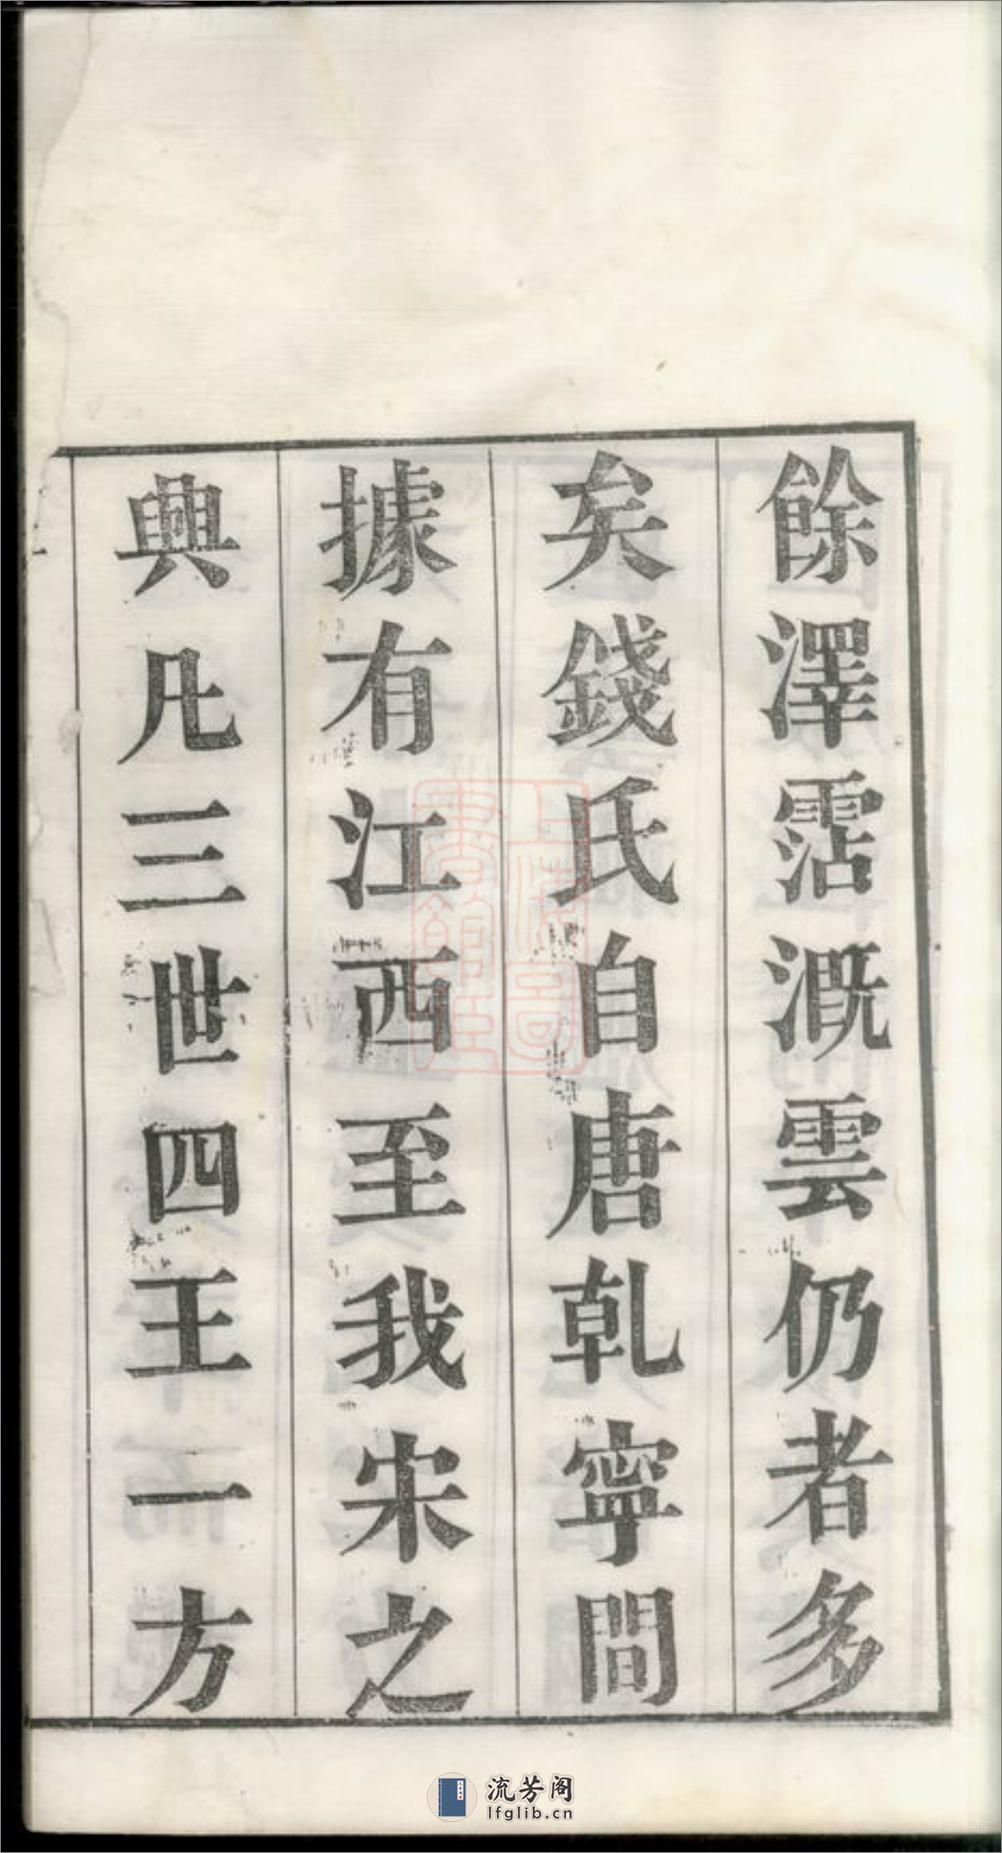 餘澤霑溉雲仍者多
矣錢氏自唐乾寧間
據有江西至我宋之
興凡三世四王一方
流芳阁
lfglib.cn